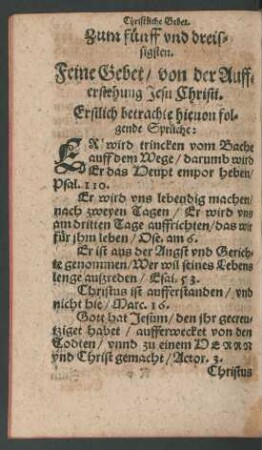 Christliche Gebet.
Zum fünff vnd dreis-
sigsten.
Feine Gebet / von der Auff-
erstehung Jesu Christi.
Erstlich betrachte hieuon fol-
gende Sprüche:
ER wird trincken vom Bache
auff dem Wege / darumb wird
Er das Heupt empor heben /
Psal. 110.
Er wird vns lebendig machen /
nach zweyen Tagen / Er wird vns
am dritten Tage auffrichten / das wir
für jhm leben / Ose. am 6.
Er ist aus der Angst vnd Gerich-
te genommen / Wer wil seines Lebens
lenge auszreden / Esai. 53.
Christus ist aufferstanden / vnd
nicht hie / Marc. 16.
Gott hat Jesum / den jhr gecreu-
tziget habet / aufferwecket von den
Todten / vnnd zu einem HERRN
vnd Christ gemacht / Actor. 3.
Christus